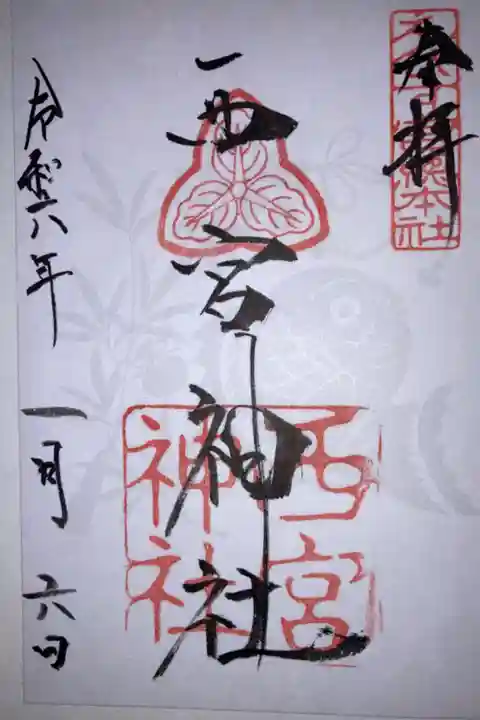 奉拝
西宮神社
西宮
神社
令和六年 一月 六日